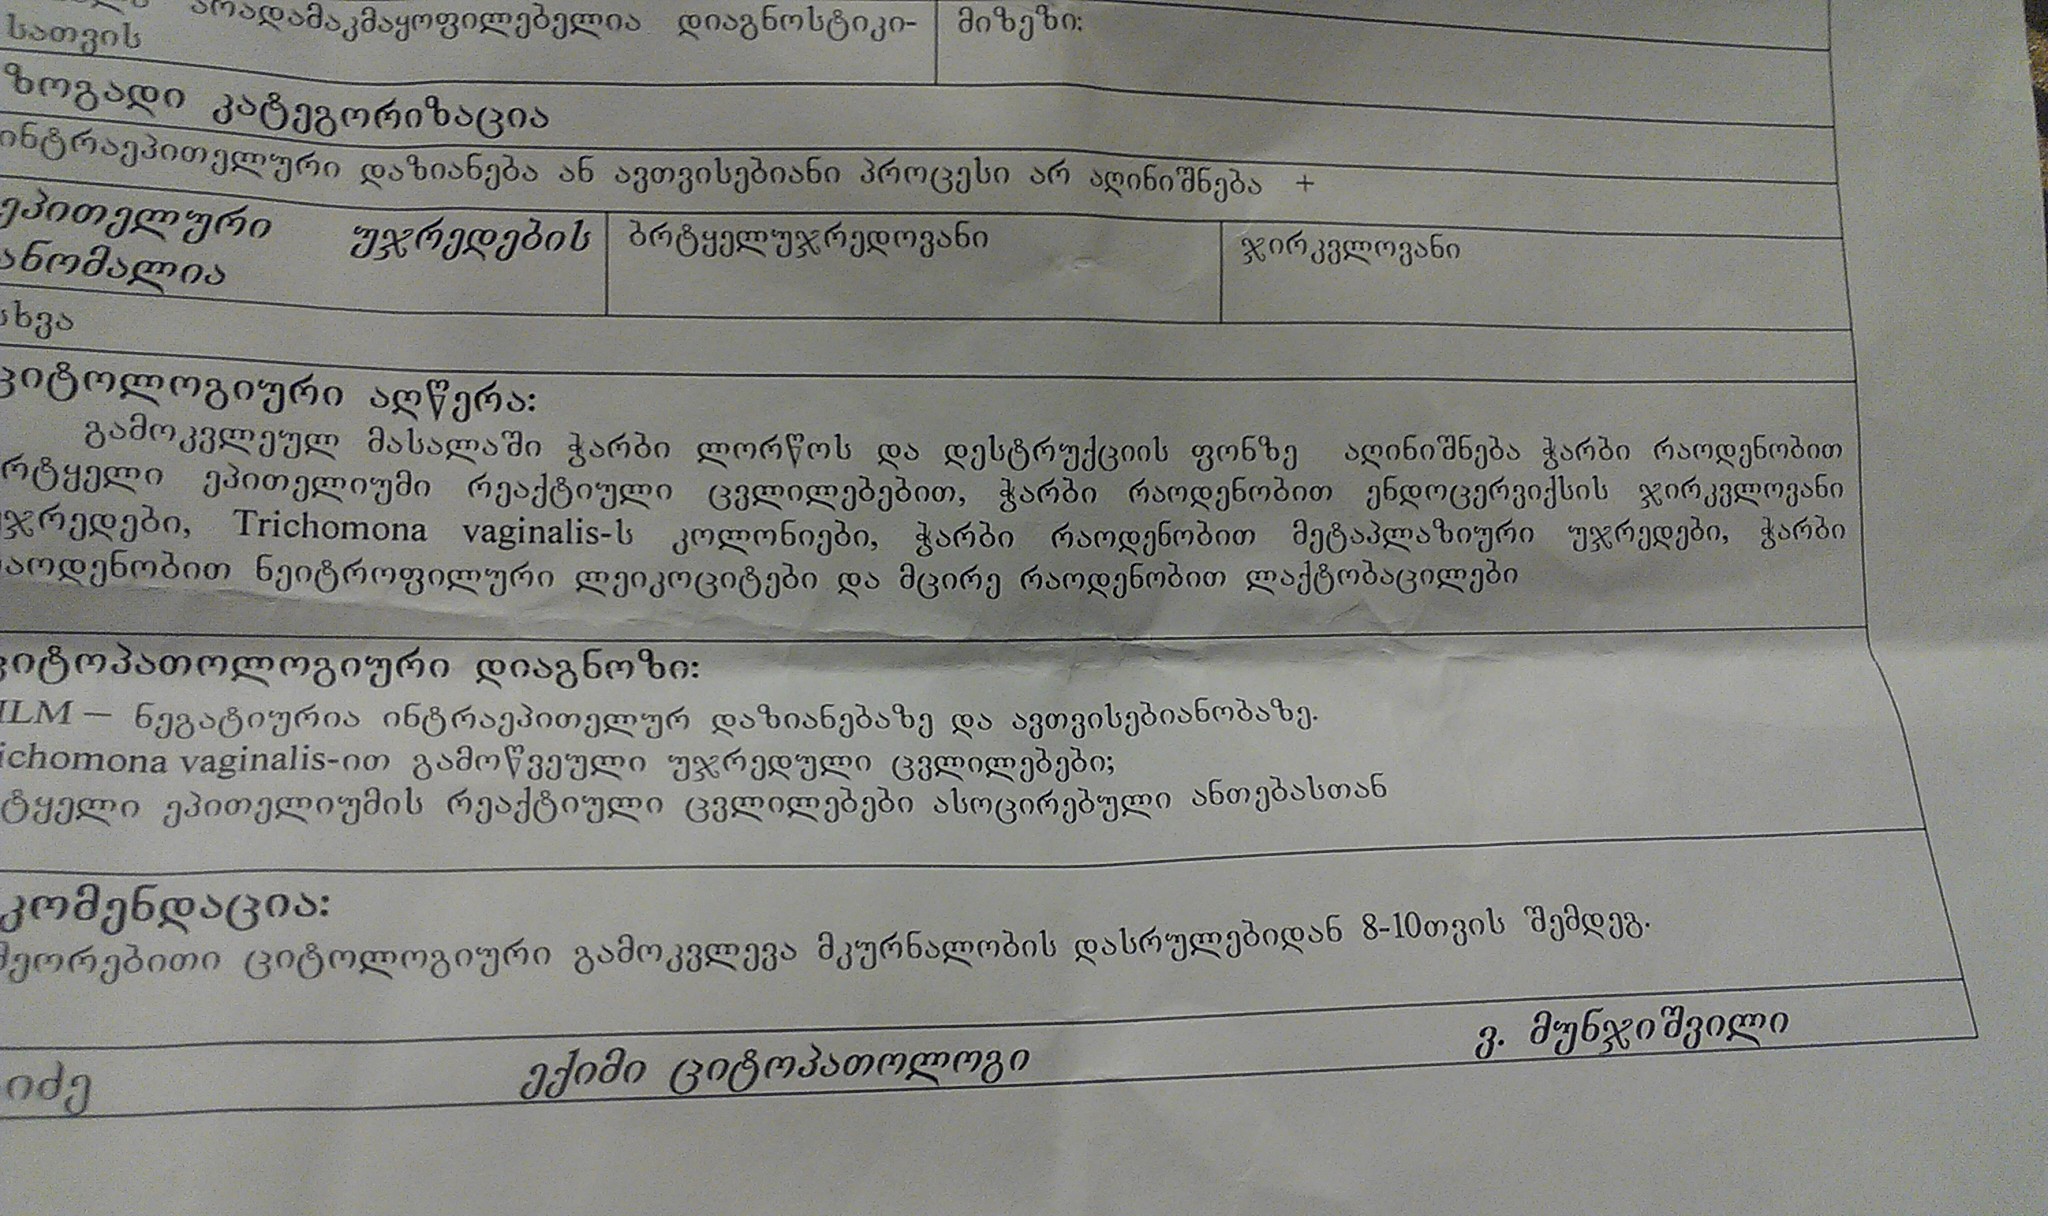 არადამაკმაყოფილებელია დიაგნოსტიკი-
სათვის
მიზეზი:
ზოგადი კატეგორიზაცია
ინტრაეპითელური დაზიანება ან ავთვისებიანი პროცესი არ აღინიშნება +
ეპითელური უჯრედების
ანომალია
ბრტყელუჯრედოვანი
ჯირკვლოვანი
სხვა
ციტოლოგიური აღწერა:
გამოკვლეულ მასალაში ჭარბი ლორწოს და დესტრუქციის ფონზე აღინიშნება ჭარბი რაოდენობით
რტყელი ეპითელიუმი რეაქტიული ცვლილებებით, ჭარბი რაოდენობით ენდოცერვიქსის ჯირკვლოვანი
უჯრედები, Trichomona vaginalis-ს კოლონიები, ჭარბი რაოდენობით მეტაპლაზიური უჯრედები, ჭარბი
რაოდენობით ნეიტროფილური ლეიკოციტები და მცირე რაოდენობით ლაქტობაცილები
ციტოპათოლოგიური დიაგნოზი:
ILM — ნეგატიურია ინტრაეპითელურ დაზიანებაზე და ავთვისებიანობაზე.
ichomona vaginalis-ით გამოწვეული უჯრედული ცვლილებები;
ტყელი ეპითელიუმის რეაქტიული ცვლილებები ასოცირებული ანთებასთან
კომენდაცია:
მეორებითი ციტოლოგიური გამოკვლევა მკურნალობის დასრულებიდან 8-10თვის შემდეგ.
იძე ექიმი ციტოპათოლოგი ვ. მუნჯიშვილი